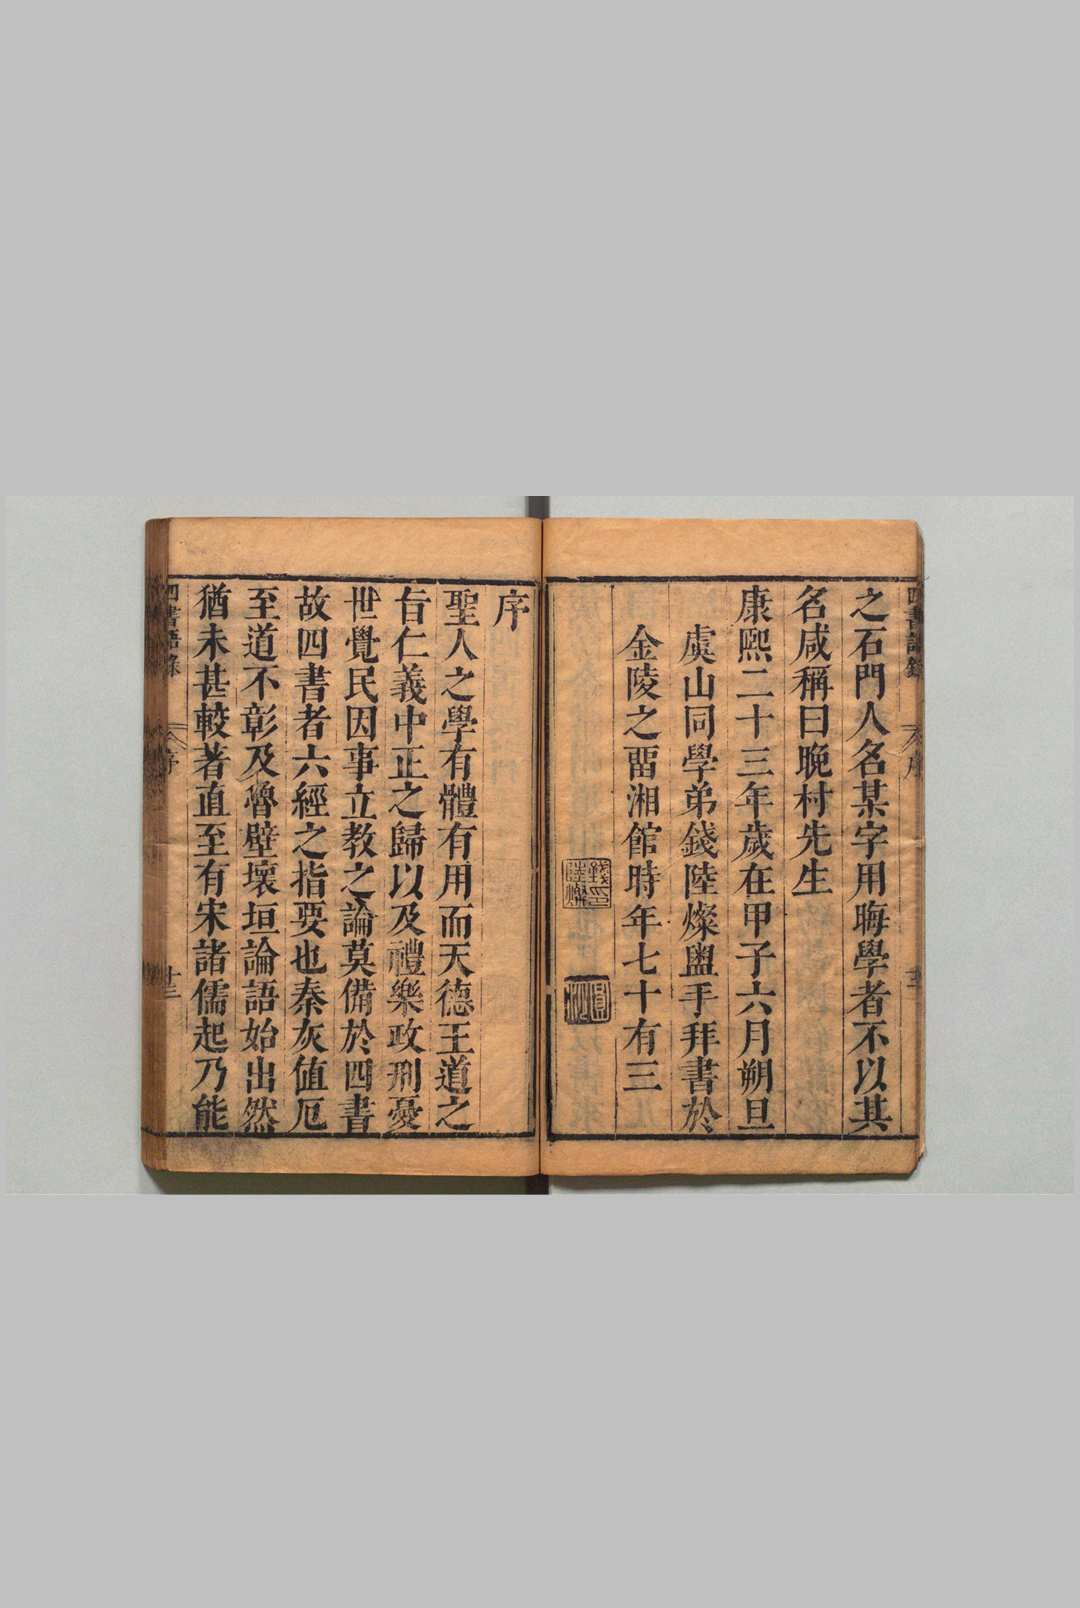 四書語錄
序
十三
之石門人名某字用晦學者不以其
名咸稱曰晩村先生
康熙二十三年歲在甲子六月朔旦
虞山同學弟錢陸燦盥手拜書於
金陵之畱湘館時年七十有三
錢印陸燦
圓沙
序
聖人之學有體有用而天德王道之
旨仁義中正之歸以及禮樂政刑憂
世覺民因事立教之論莫備於四書
故四書者六經之指要也秦灰值厄
至道不彰及魯壁壞垣論語始出然
猶未甚較著直至有宋諸儒起乃能
四書語錄
序
十三